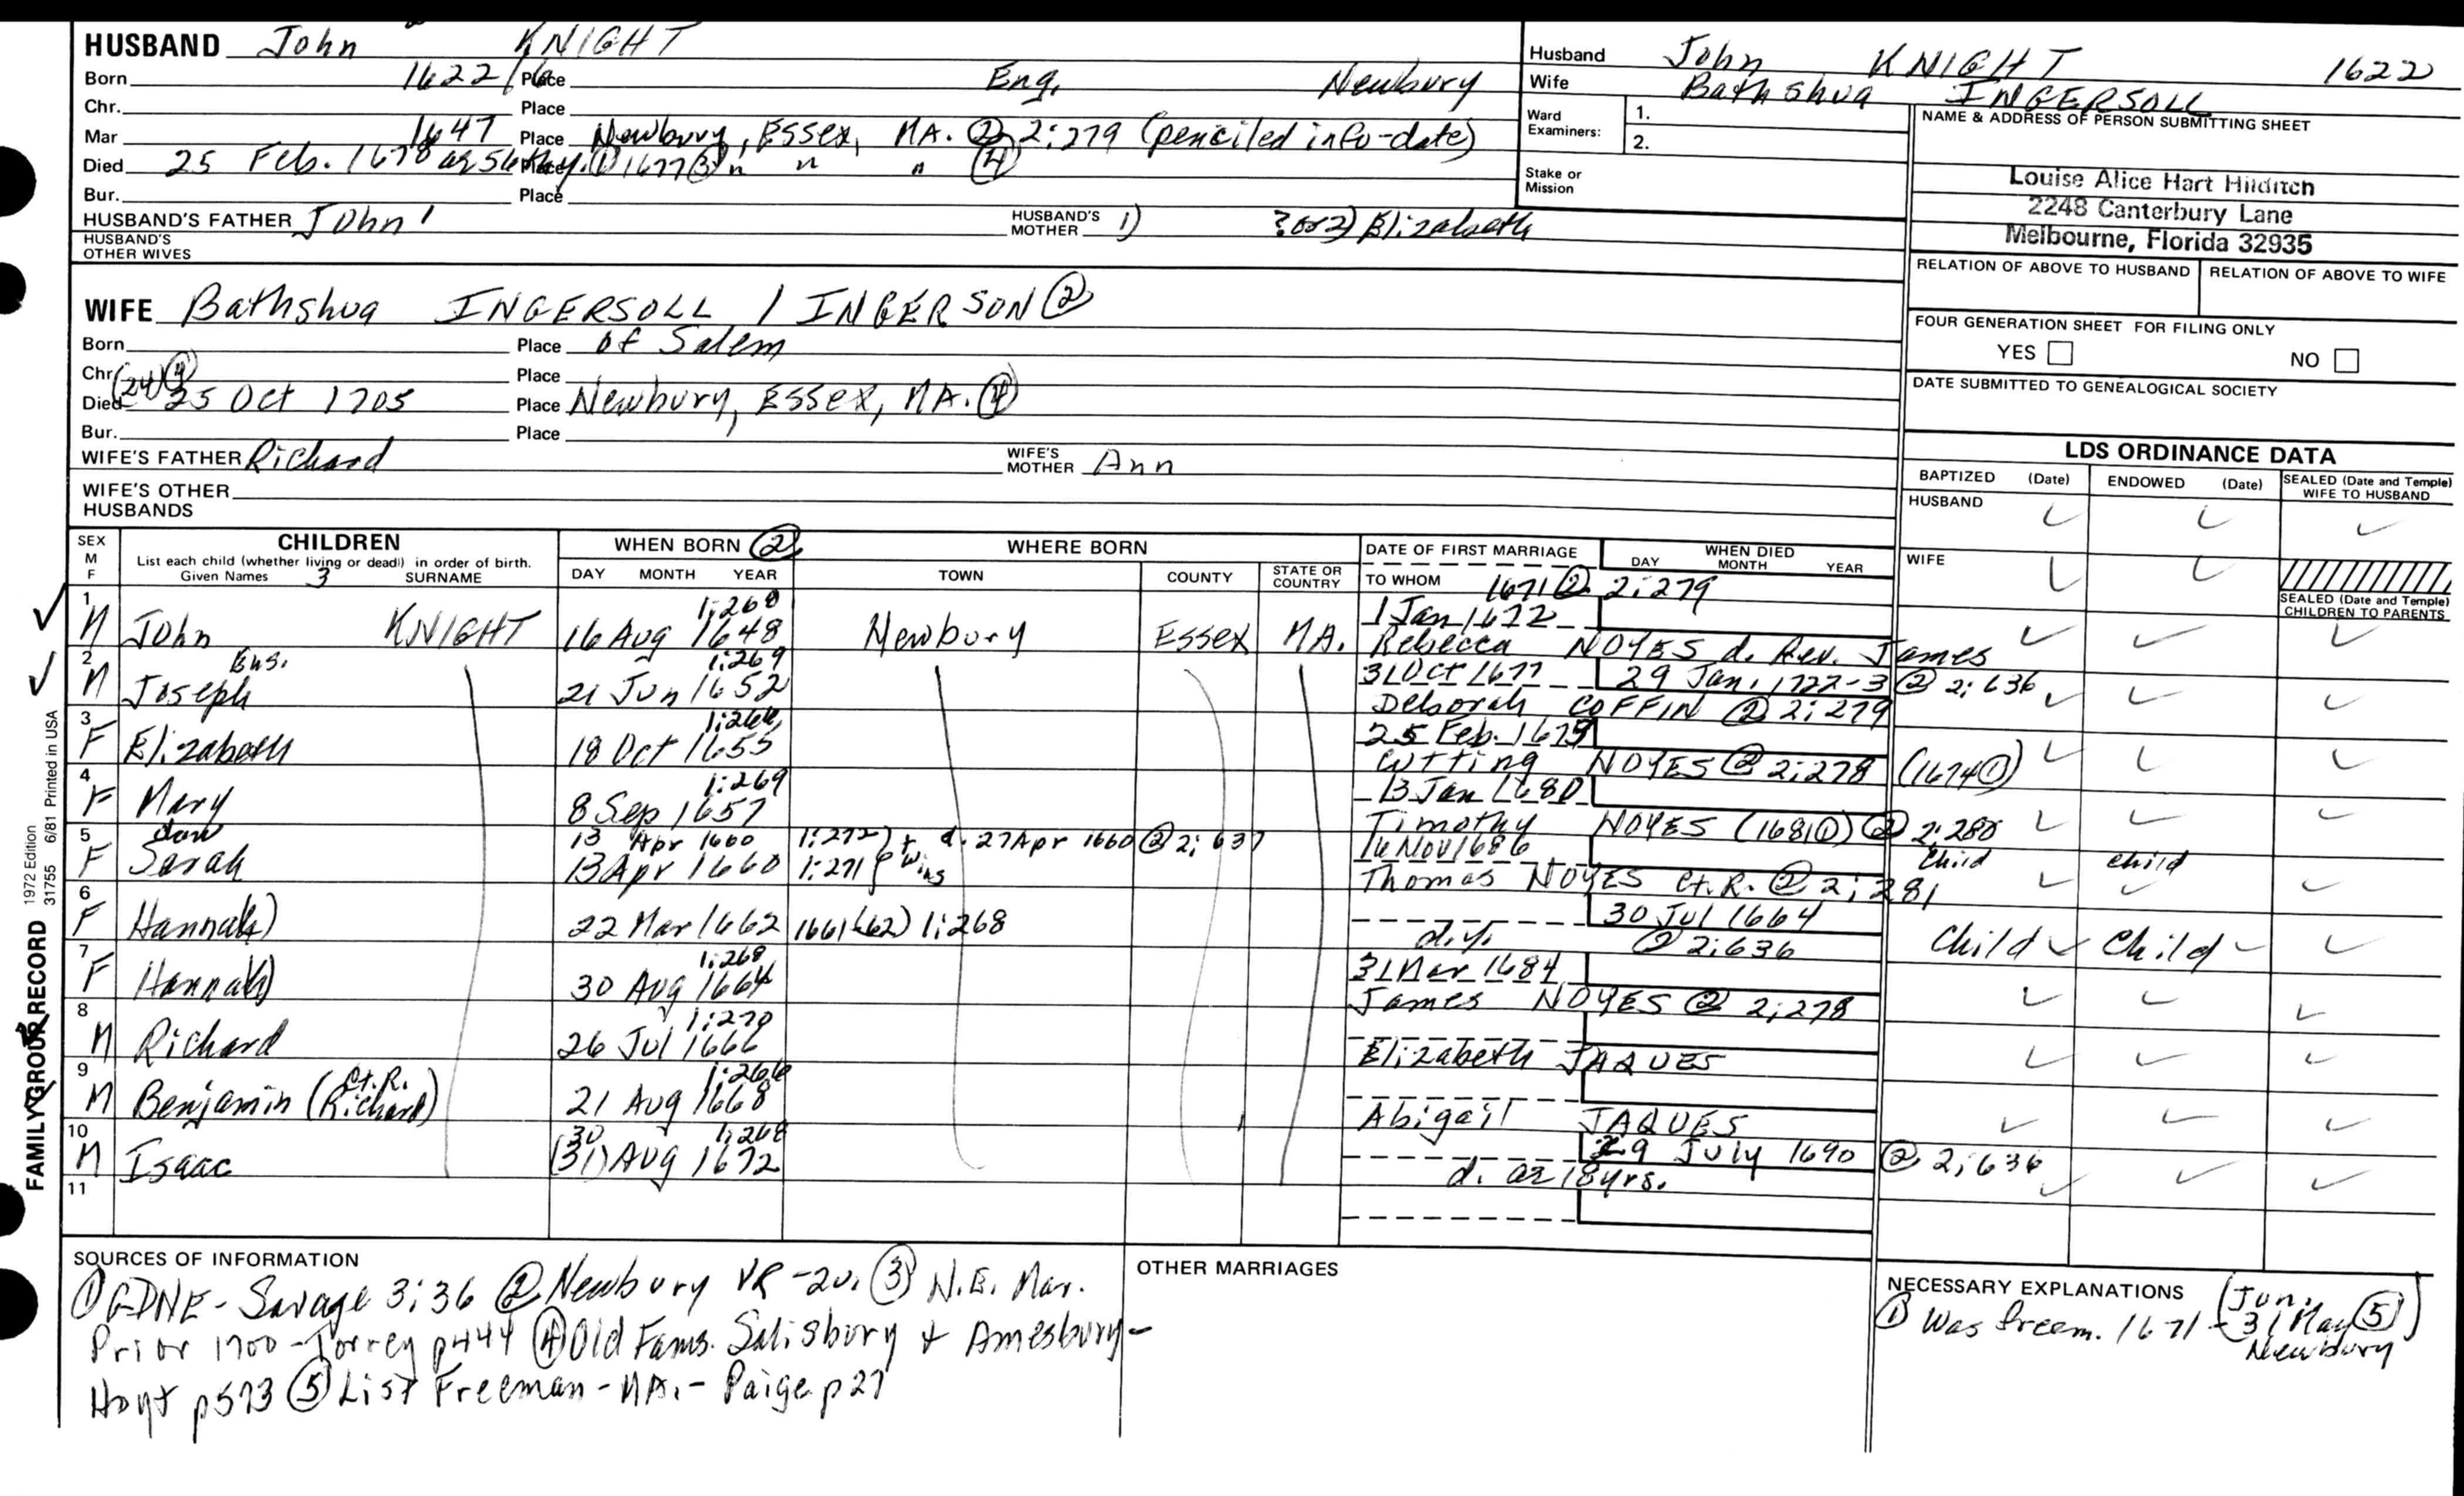 HUSBAND John KNIGHT
Born 1622/ Place Eng. Newbury
Chr. Place
Mar 1647 Place Newbury, Essex, MA. ② 2:279 (penciled info-date)
Died 25 Feb. 1678 Place ① 1677 ③ " " " ④
Bur. Place
HUSBAND'S FATHER John HUSBAND'S MOTHER 1) ? or 2) Elizabeth
HUSBAND'S OTHER WIVES
Husband John KNIGHT 1622
Wife Bathshua INGERSOLL
Ward Examiners: 1.
2.
Stake or Mission
NAME & ADDRESS OF PERSON SUBMITTING SHEET
Louise Alice Hart Hilditch
2248 Canterbury Lane
Melbourne, Florida 32935
RELATION OF ABOVE TO HUSBAND RELATION OF ABOVE TO WIFE
FOUR GENERATION SHEET FOR FILING ONLY
YES NO
DATE SUBMITTED TO GENEALOGICAL SOCIETY
WIFE Bathshua INGERSOLL / INGERSON ②
Born Place of Salem
Chr Place
Died (24) ④ 25 Oct 1705 Place Newbury, Essex, MA. ④
Bur. Place
WIFE'S FATHER Richard WIFE'S MOTHER Ann
WIFE'S OTHER HUSBANDS
LDS ORDINANCE DATA
BAPTIZED (Date) ENDOWED (Date) SEALED (Date and Temple) WIFE TO HUSBAND
HUSBAND ✓ ✓ ✓
WIFE ✓ ✓
SEALED (Date and Temple) CHILDREN TO PARENTS
SEX M F CHILDREN WHEN BORN ② WHERE BORN DATE OF FIRST MARRIAGE WHEN DIED
List each child (whether living or dead) in order of birth.
Given Names 3 SURNAME DAY MONTH YEAR TOWN COUNTY STATE OR COUNTRY TO WHOM DAY MONTH YEAR
1671 ② 2:279
1 1:268 1 Jan 1672
M John KNIGHT 16 Aug 1648 Newbury Essex MA. Rebecca NOYES d. Rev. James ✓ ✓ ✓
2 Ens. 1:269 31 Oct 1677 29 Jan. 1722-3 ② 2:636
M Joseph 21 Jun 1652 Deborah COFFIN ② 2:279 ✓ ✓ ✓
3 1:266 25 Feb. 1673
F Elizabeth 18 Oct 1655 Cutting NOYES ② 2:278 (1674 ①) ✓ ✓ ✓
4 1:269 13 Jan 1680
F Mary 8 Sep 1657 Timothy NOYES (1681 ①) ② 2:280 ✓ ✓ ✓
5 dau 13 Apr 1660 1:272 } twins d. 27 Apr 1660 ② 2:637 16 Nov 1686 Child child
F Sarah 13 Apr 1660 1:271 Thomas NOYES Ct.R. ② 2:281 ✓ ✓ ✓
6 30 Jul 1664
F Hannah) 22 Mar 1662 1661(62) 1:268 d.y. ② 2:636 Child ✓ Child ✓ ✓
7 1:268 31 Mar 1684
F Hannah) 30 Aug 1664 James NOYES ② 2:278 ✓ ✓ ✓
8 1:270
M Richard 26 Jul 1666 Elizabeth JAQUES ✓ ✓ ✓
9 Ct.R. 1:266
M Benjamin (Richard) 21 Aug 1668 Abigail JAQUES ✓ ✓ ✓
10 30 1:268 29 July 1690 ② 2:636
M Isaac (31) Aug 1672 d. ae 18 yrs. ✓ ✓ ✓
11
FAMILY GROUP RECORD 1972 Edition
31755 6/81 Printed in USA
SOURCES OF INFORMATION
① GDNE - Savage 3:36 ② Newbury VR - 2v. ③ N.E. Mar.
Prior 1700 - Torrey p444 ④ Old Fams. Salisbury & Amesbury -
Hoyt p573 ⑤ List Freeman - MA. - Paige p27
OTHER MARRIAGES
NECESSARY EXPLANATIONS
① Was freem. 1671 - (Jun. 31 May ⑤)
Newbury